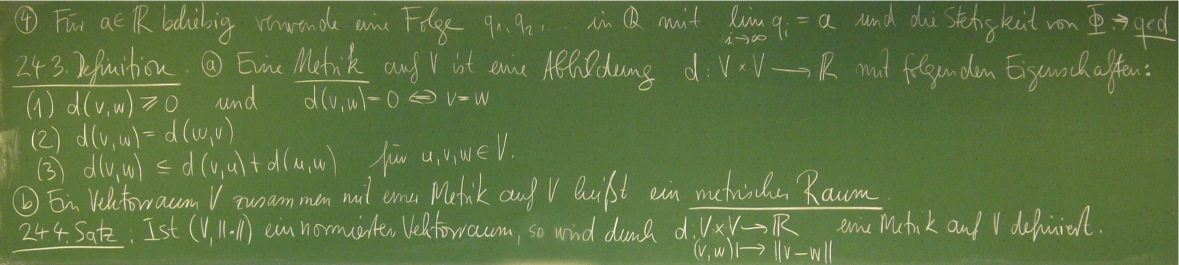 ④ Für a∈ℝ beliebig verwende eine Folge q₁, q₂, ... in ℚ mit lim_{i→∞} q_i = a und die Stetigkeit von Φ. → qed
24.3. Definition. ⓐ Eine Metrik auf V ist eine Abbildung d: V×V → ℝ mit folgenden Eigenschaften:
(1) d(v,w) ≥ 0 und d(v,w) = 0 ⇔ v = w
(2) d(v,w) = d(w,v)
(3) d(v,w) ≤ d(v,u) + d(u,w) für u,v,w ∈ V.
ⓑ Ein Vektorraum V zusammen mit einer Metrik auf V heißt ein metrischer Raum
24.4. Satz: Ist (V, ‖·‖) ein normierter Vektorraum, so wird durch d: V×V → ℝ eine Metrik auf V definiert.
(v,w) ↦ ‖v−w‖